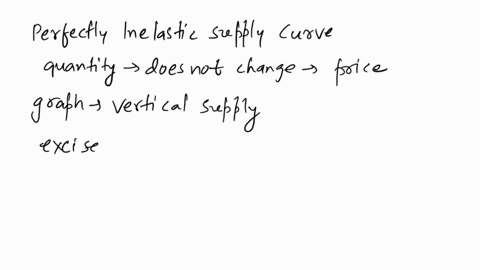 Perfectly Inelastic supply curve
quantity → does not change → price
graph → vertical supply
excise